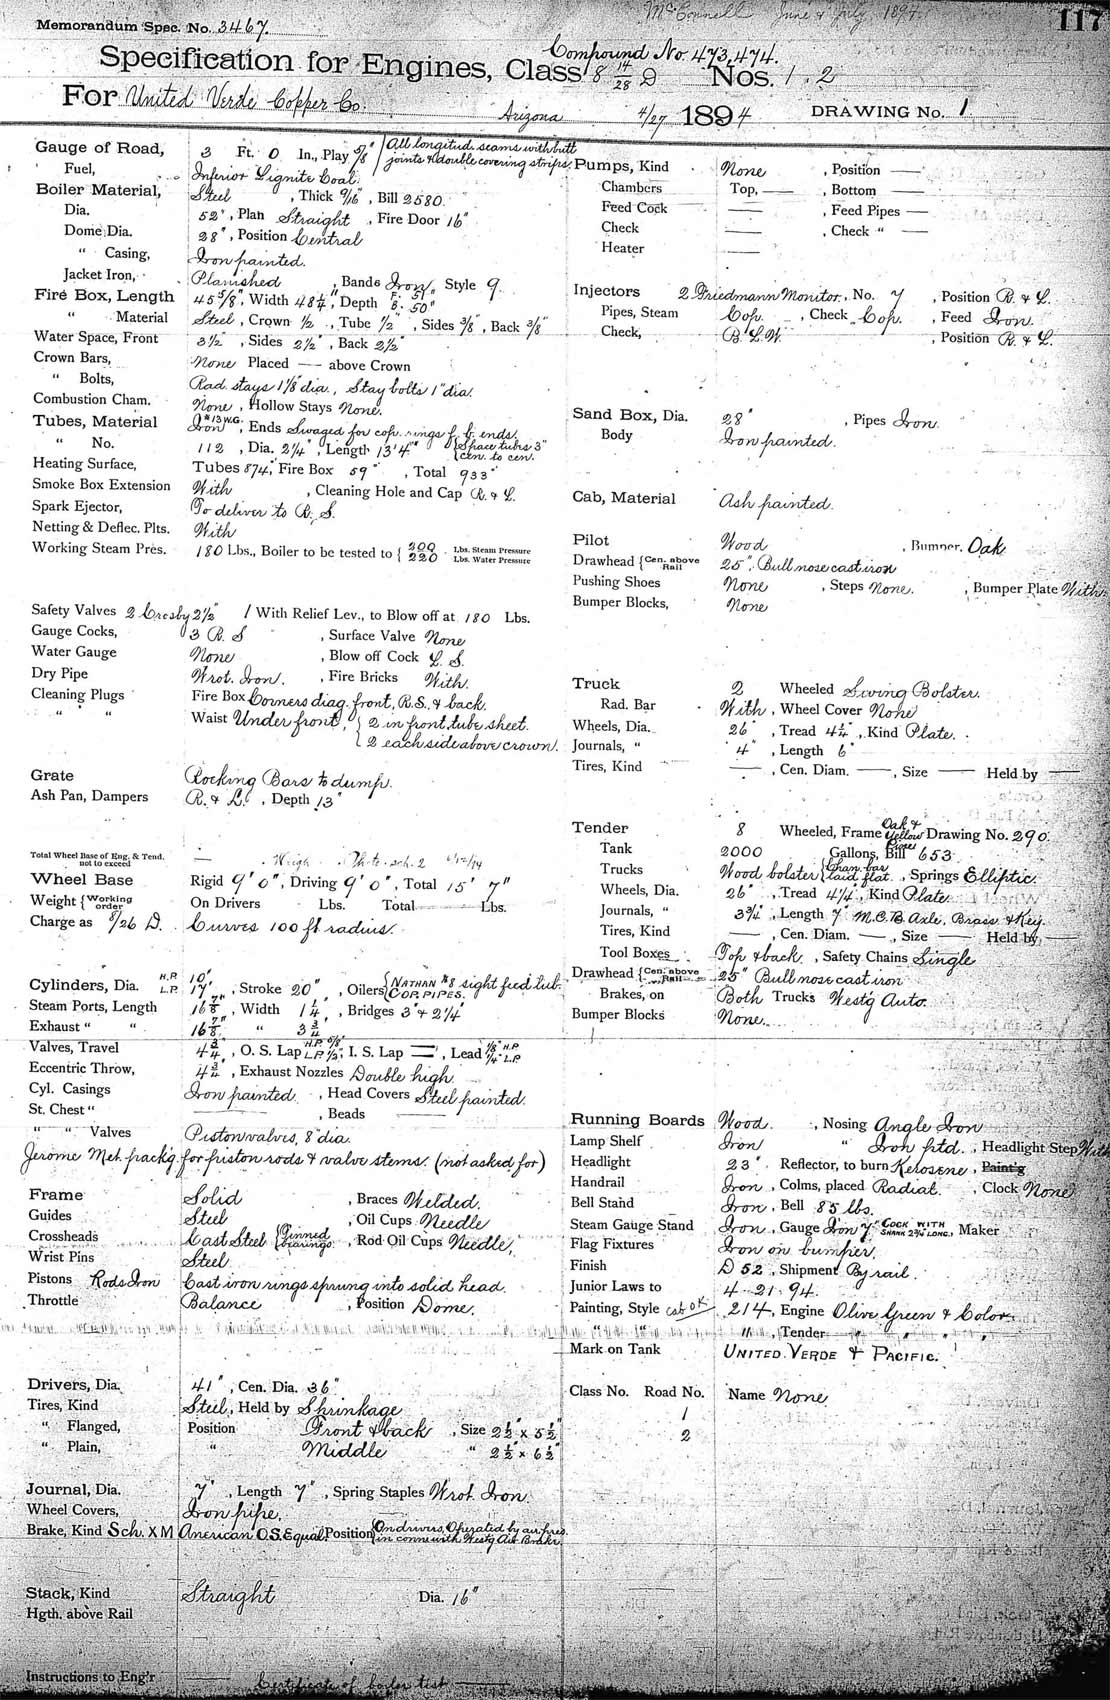 McConnell June & July 1894
117
Memorandum Spec. No. 3467.
Compound No. 473, 474.
Specification for Engines, Class 8 14/28 D Nos. 1. 2
For United Verde Copper Co.
Arizona 4/27 1894 DRAWING No. 1
Gauge of Road, 3 Ft. 0 In., Play 5/8" All longitud. seams with butt joints & double covering strips.
Fuel, Inferior Lignite Coal.
Boiler Material, Steel, Thick 9/16", Bill 2580.
Dia. 52", Plan Straight, Fire Door 16"
Dome Dia. 28", Position Central
" Casing, Iron painted.
Jacket Iron, Planished, Bands Iron, Style 9.
Fire Box, Length 45 5/8", Width 48 1/4", Depth F. 51" B. 50"
" Material Steel, Crown 1/2", Tube 1/2", Sides 3/8", Back 3/8"
Water Space, Front 3 1/2", Sides 2 1/2", Back 2 1/2"
Crown Bars, None Placed — above Crown
" Bolts, Rad. stays 1 1/8" dia., Stay bolts 1" dia.
Combustion Cham. None, Hollow Stays None.
Tubes, Material Iron #13 W.G., Ends Swaged for cop. rings f. b. ends.
" No. 112, Dia. 2 1/4", Length 13' 4" Space tubes 3" cen. to cen.
Heating Surface, Tubes 874, Fire Box 59", Total 933"
Smoke Box Extension With, Cleaning Hole and Cap R. & L.
Spark Ejector, To deliver to R. S.
Netting & Deflec. Plts. With
Working Steam Pres. 180 Lbs., Boiler to be tested to { 200 Lbs. Steam Pressure 220 Lbs. Water Pressure
Safety Valves 2 Crosby 2 1/2" 1 With Relief Lev., to Blow off at 180 Lbs.
Gauge Cocks, 3 R. S, Surface Valve None
Water Gauge None, Blow off Cock L. S.
Dry Pipe Wrot. Iron., Fire Bricks With.
Cleaning Plugs Fire Box Corners diag. front, R.S. & back.
" " Waist Under front, { 2 in front tube sheet.
{ 2 each side above crown.
Grate Rocking Bars to dump.
Ash Pan, Dampers R. & L., Depth 13"
Total Wheel Base of Eng. & Tend. not to exceed —
Wheel Base Rigid 9' 0", Driving 9' 0", Total 15' 7"
Weight { Working order On Drivers Lbs. Total Lbs.
Charge as 8/26 D. Curves 100 ft radius.
Cylinders, Dia. H.P. 10" L.P. 17", Stroke 20", Oilers { NATHAN #8 sight feed lub. COP. PIPES.
Steam Ports, Length 16 7/8", Width 1 1/4", Bridges 3" & 2 1/4"
Exhaust " " 16 7/8", " 3 3/4
Valves, Travel 4 3/4", O. S. Lap H.P. 5/8" L.P. 1/2", I. S. Lap —, Lead 1/8" H.P. 1/4" L.P.
Eccentric Throw, 4 3/4", Exhaust Nozzles Double high
Cyl. Casings Iron painted., Head Covers Steel painted.
St. Chest " —, Beads —
" " Valves Piston valves, 8" dia.
Jerome Met. packg. for piston rods & valve stems. (not asked for)
Frame Solid, Braces Welded.
Guides Steel, Oil Cups Needle
Crossheads Cast Steel { Tinned bearings, Rod Oil Cups Needle,
Wrist Pins Steel
Pistons Rods Iron Cast iron rings sprung into solid head.
Throttle Balance, Position Dome.
Drivers, Dia. 41", Cen. Dia. 36"
Tires, Kind Steel, Held by Shrinkage
" Flanged, Position Front & back, Size 2 1/2" x 5 1/2"
" Plain, " Middle " 2 1/2" x 6 1/2"
Journal, Dia. 7", Length 7", Spring Staples Wrot. Iron.
Wheel Covers, Iron pipe.
Brake, Kind Sch. XM American O.S. Equal. Position { On drivers, Operated by air pres. in conn. with Westg Air Brake.
Stack, Kind Straight Dia. 16"
Hgth. above Rail
Instructions to Eng'r — Certificate of boiler test —
Pumps, Kind None, Position —
Chambers Top, —, Bottom —
Feed Cock —, Feed Pipes —
Check —, Check " —
Heater —
Injectors 2 Friedmann Monitor., No. 7, Position R. & L.
Pipes, Steam Cop., Check Cop., Feed Iron.
Check, B. L. W., Position R. & L.
Sand Box, Dia. 28", Pipes Iron.
Body Iron painted.
Cab, Material Ash painted.
Pilot Wood, Bumper. Oak
Drawhead { Cen. above Rail 25", Bull nose cast iron
Pushing Shoes None, Steps None., Bumper Plate With.
Bumper Blocks, None
Truck 2 Wheeled Swing Bolster.
Rad. Bar With, Wheel Cover None
Wheels, Dia. 26", Tread 4 1/4", Kind Plate.
Journals, " 4", Length 6"
Tires, Kind —, Cen. Diam. —, Size — Held by —
Tender 8 Wheeled, Frame Oak & Yellow Pine Drawing No. 290.
Tank 2000 Gallons, Bill 653
Trucks Wood bolster { Chan. bar laid flat., Springs Elliptic.
Wheels, Dia. 26", Tread 4 1/4", Kind Plate.
Journals, " 3 3/4", Length 7" M.C.B. Axle, Brass & Key.
Tires, Kind —, Cen. Diam. —, Size — Held by —
Tool Boxes Top & back., Safety Chains Single
Drawhead { Cen. above Rail 25" Bull nose cast iron
Brakes, on Both Trucks Westg Auto.
Bumper Blocks None.
Running Boards Wood., Nosing Angle Iron
Lamp Shelf Iron " Iron ptd., Headlight Step With
Headlight 23" Reflector, to burn Kerosene, Paint'g
Handrail Iron, Colms, placed Radial., Clock None
Bell Stand Iron, Bell 85 lbs.
Steam Gauge Stand Iron, Gauge Iron 7" COCK WITH SHANK 2 3/4" LONG., Maker
Flag Fixtures Iron on bumper.
Finish D 52, Shipment By rail.
Junior Laws to 4-21-94.
Painting, Style cab OK 214, Engine Olive Green & Color.
" " " , Tender " " " "
Mark on Tank UNITED VERDE & PACIFIC.
Class No. Road No. Name None
1
2